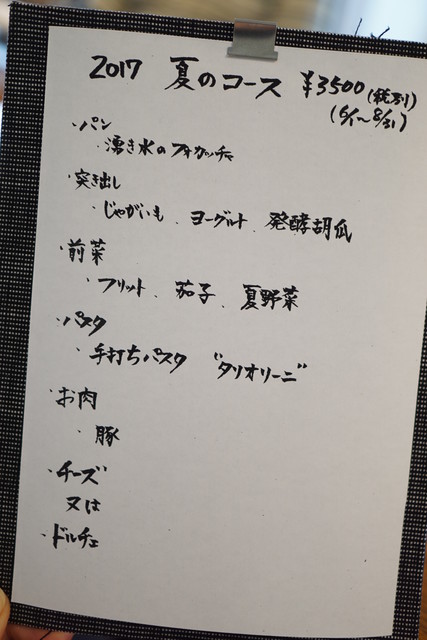 2017 夏のコース ¥3500(税別)
(6/1〜8/31)
・パン
・湧き水のフォカッチャ
・突き出し
・じゃがいも、ヨーグルト、発酵胡瓜
・前菜
・フリット、茄子、夏野菜
・パスタ
・手打ちパスタ "タリオリーニ"
・お肉
・豚
・チーズ
又は
・ドルチェ